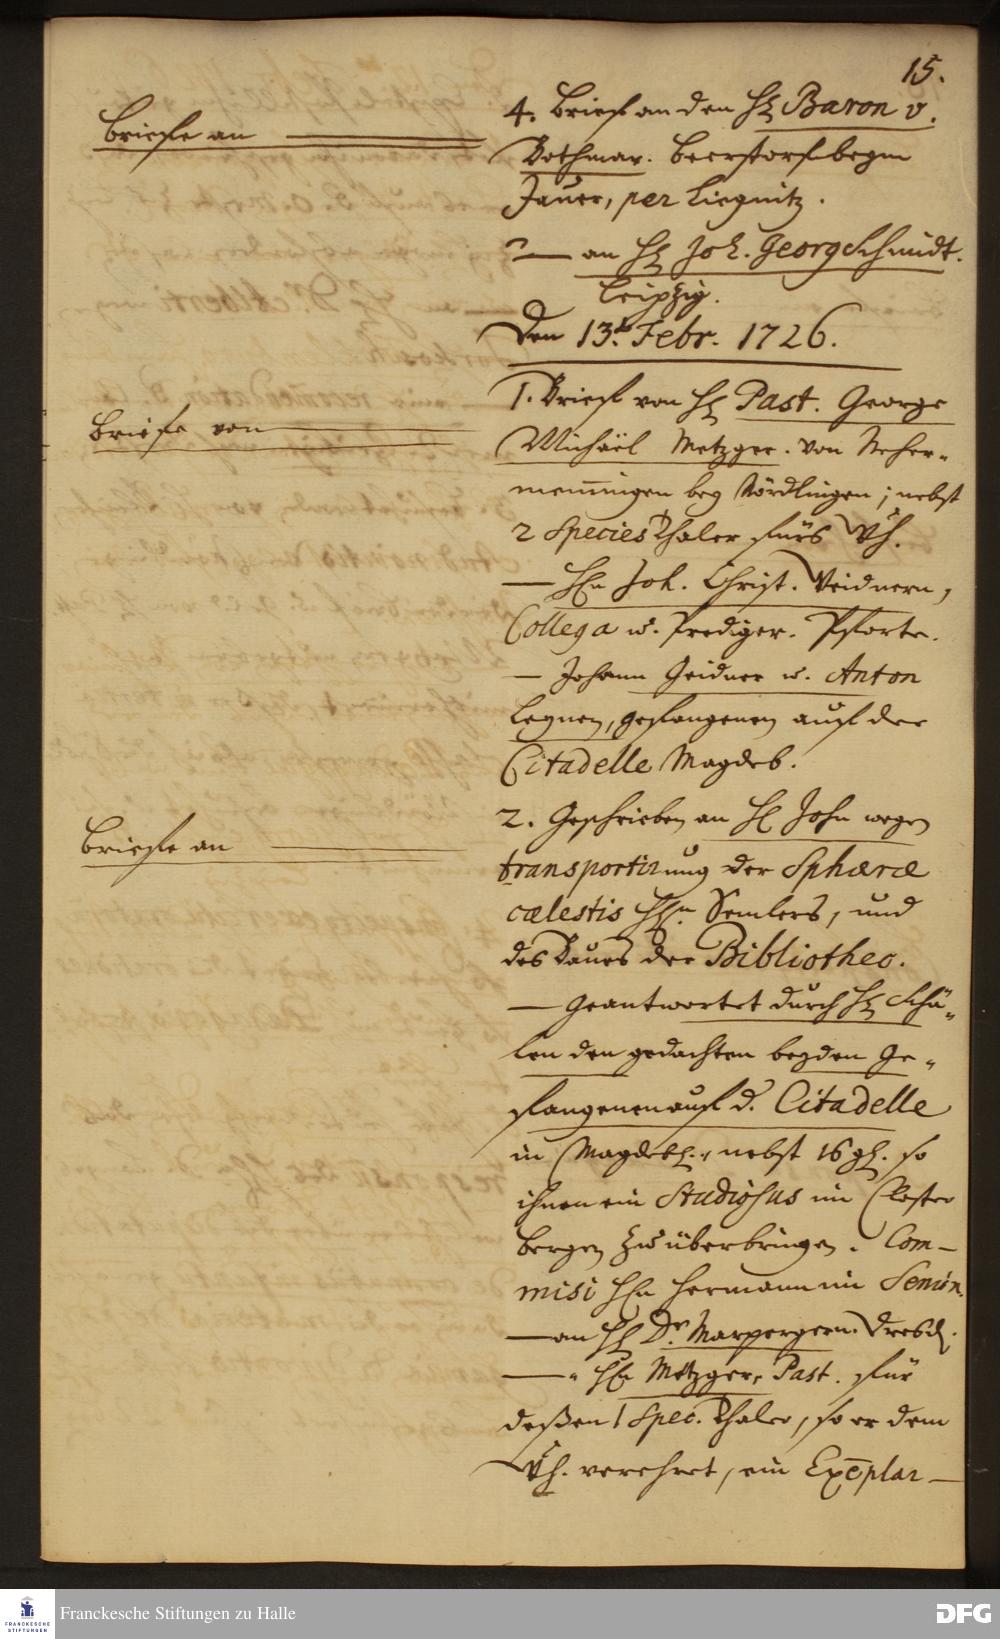 15.
Briefe an
4. Brief an den H. Baron v.
Bothmar. Beerstorf beym
Jauer, per Liegnitz.
— an H. Joh. Georg Schmidt.
Leipzig.
Den 13t. Febr. 1726.
Briefe von
1. Brief von H. Past. George
Michäel Metzger. von Neher-
memmingen bey Nördlingen; nebst
2 Species Thaler fürs Wh.
— HEn Joh. Christ. Weidnern,
Collega u. Prediger. Pforte.
— Johann Geidner u. Anton
Legner, gefangenen auf der
Citadelle Magdeb.
Briefe an
2. Geschrieben an H. John wegen
transportirung der Sphæræ
cælestis HEn. Semlers, und
des Baues der Bibliothec.
— Geantwortet durch H. Schä-
len den gedachten beyden Ge-
fangenen auf d. Citadelle
in Magdeb., nebst 16 gl. so
ihnen ein Studiosus im Closter
bergen zu überbringen. Com-
misi HEn Hermann im Semin.
— an H. Dr. Marpergern. Dresd.
— " HEn Metzger, Past. für
deßen 1 Spec. Thaler, so er dem
Wh. verehret, ein Exēplar
Franckesche Stiftungen zu Halle
FRANCKESCHE
STIFTUNGEN
DFG